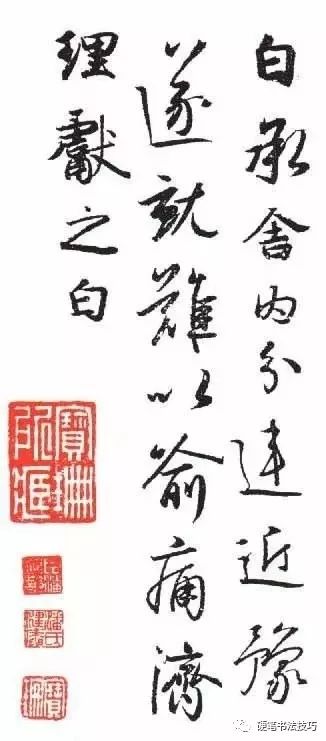 白承舍内分違近豫
遂就難以俞痛濟
理獻之白
硬笔书法技巧